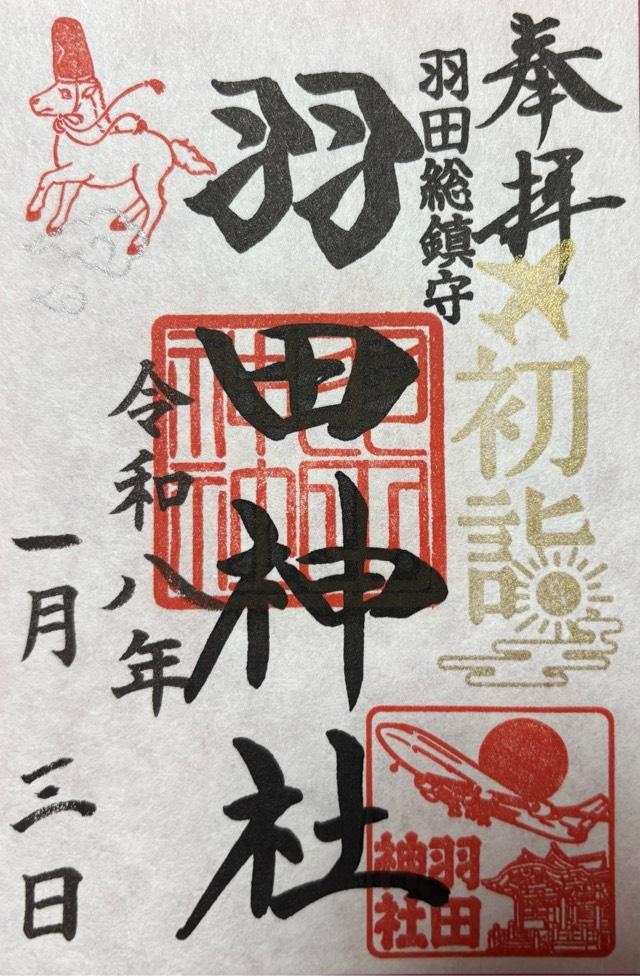 奉拝
羽田総鎮守
初詣
羽田神社
羽田
神社
令和八年
一月三日